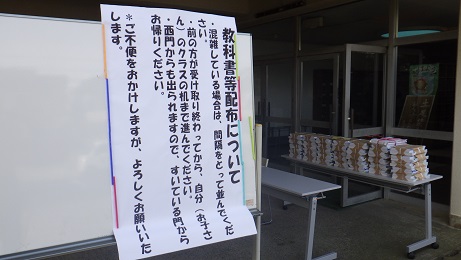 教科書等配布について
・混雑している場合は、間隔をとって並んでくだ
さい。
・前の方が受け取り終わってから、自分（お子さ
ん）のクラスの机まで進んでください。
・西門からも出られますので、すいている門から
お帰りください。
＊ご不便をおかけしますが、よろしくお願いいた
します。